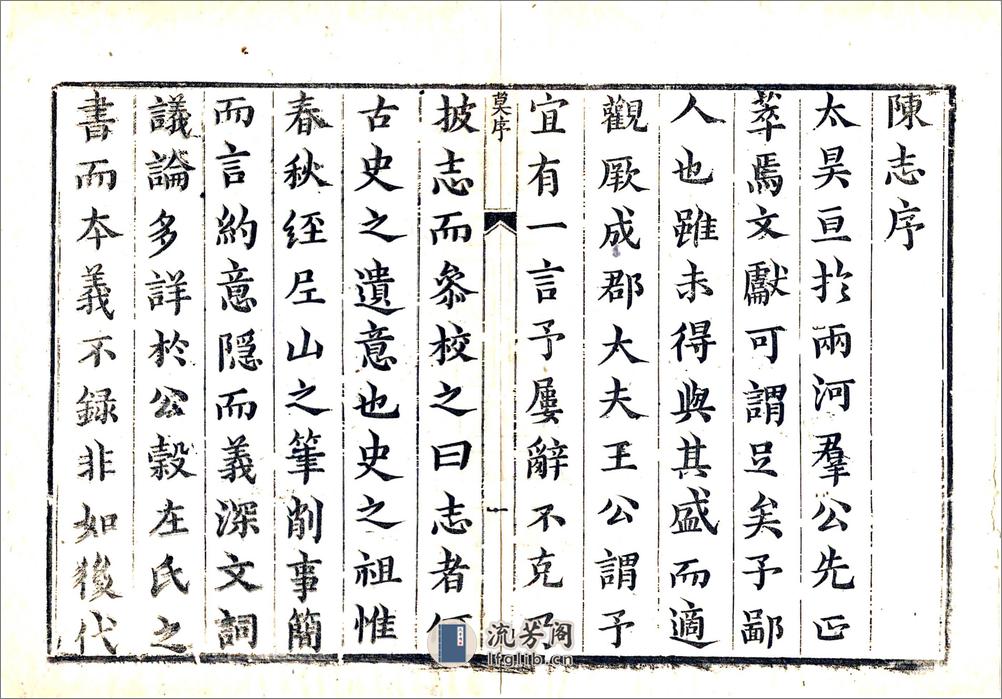 陳志序
太昊亘扵兩河羣公先正
萃焉文獻可謂𠯁矣予鄙
人也雖未得與其盛而適
觀厥成郡大夫王公謂予
宜有一言予屢辭不克
莫序
一
披志而叅校之曰志者
古史之遺意也史之祖惟
春秋經尼山之筆削事簡
而言約意隱而義深文詞
議論多詳於公穀左氏之
書而夲義不録非如後代
流芳阁
lfglib.cn